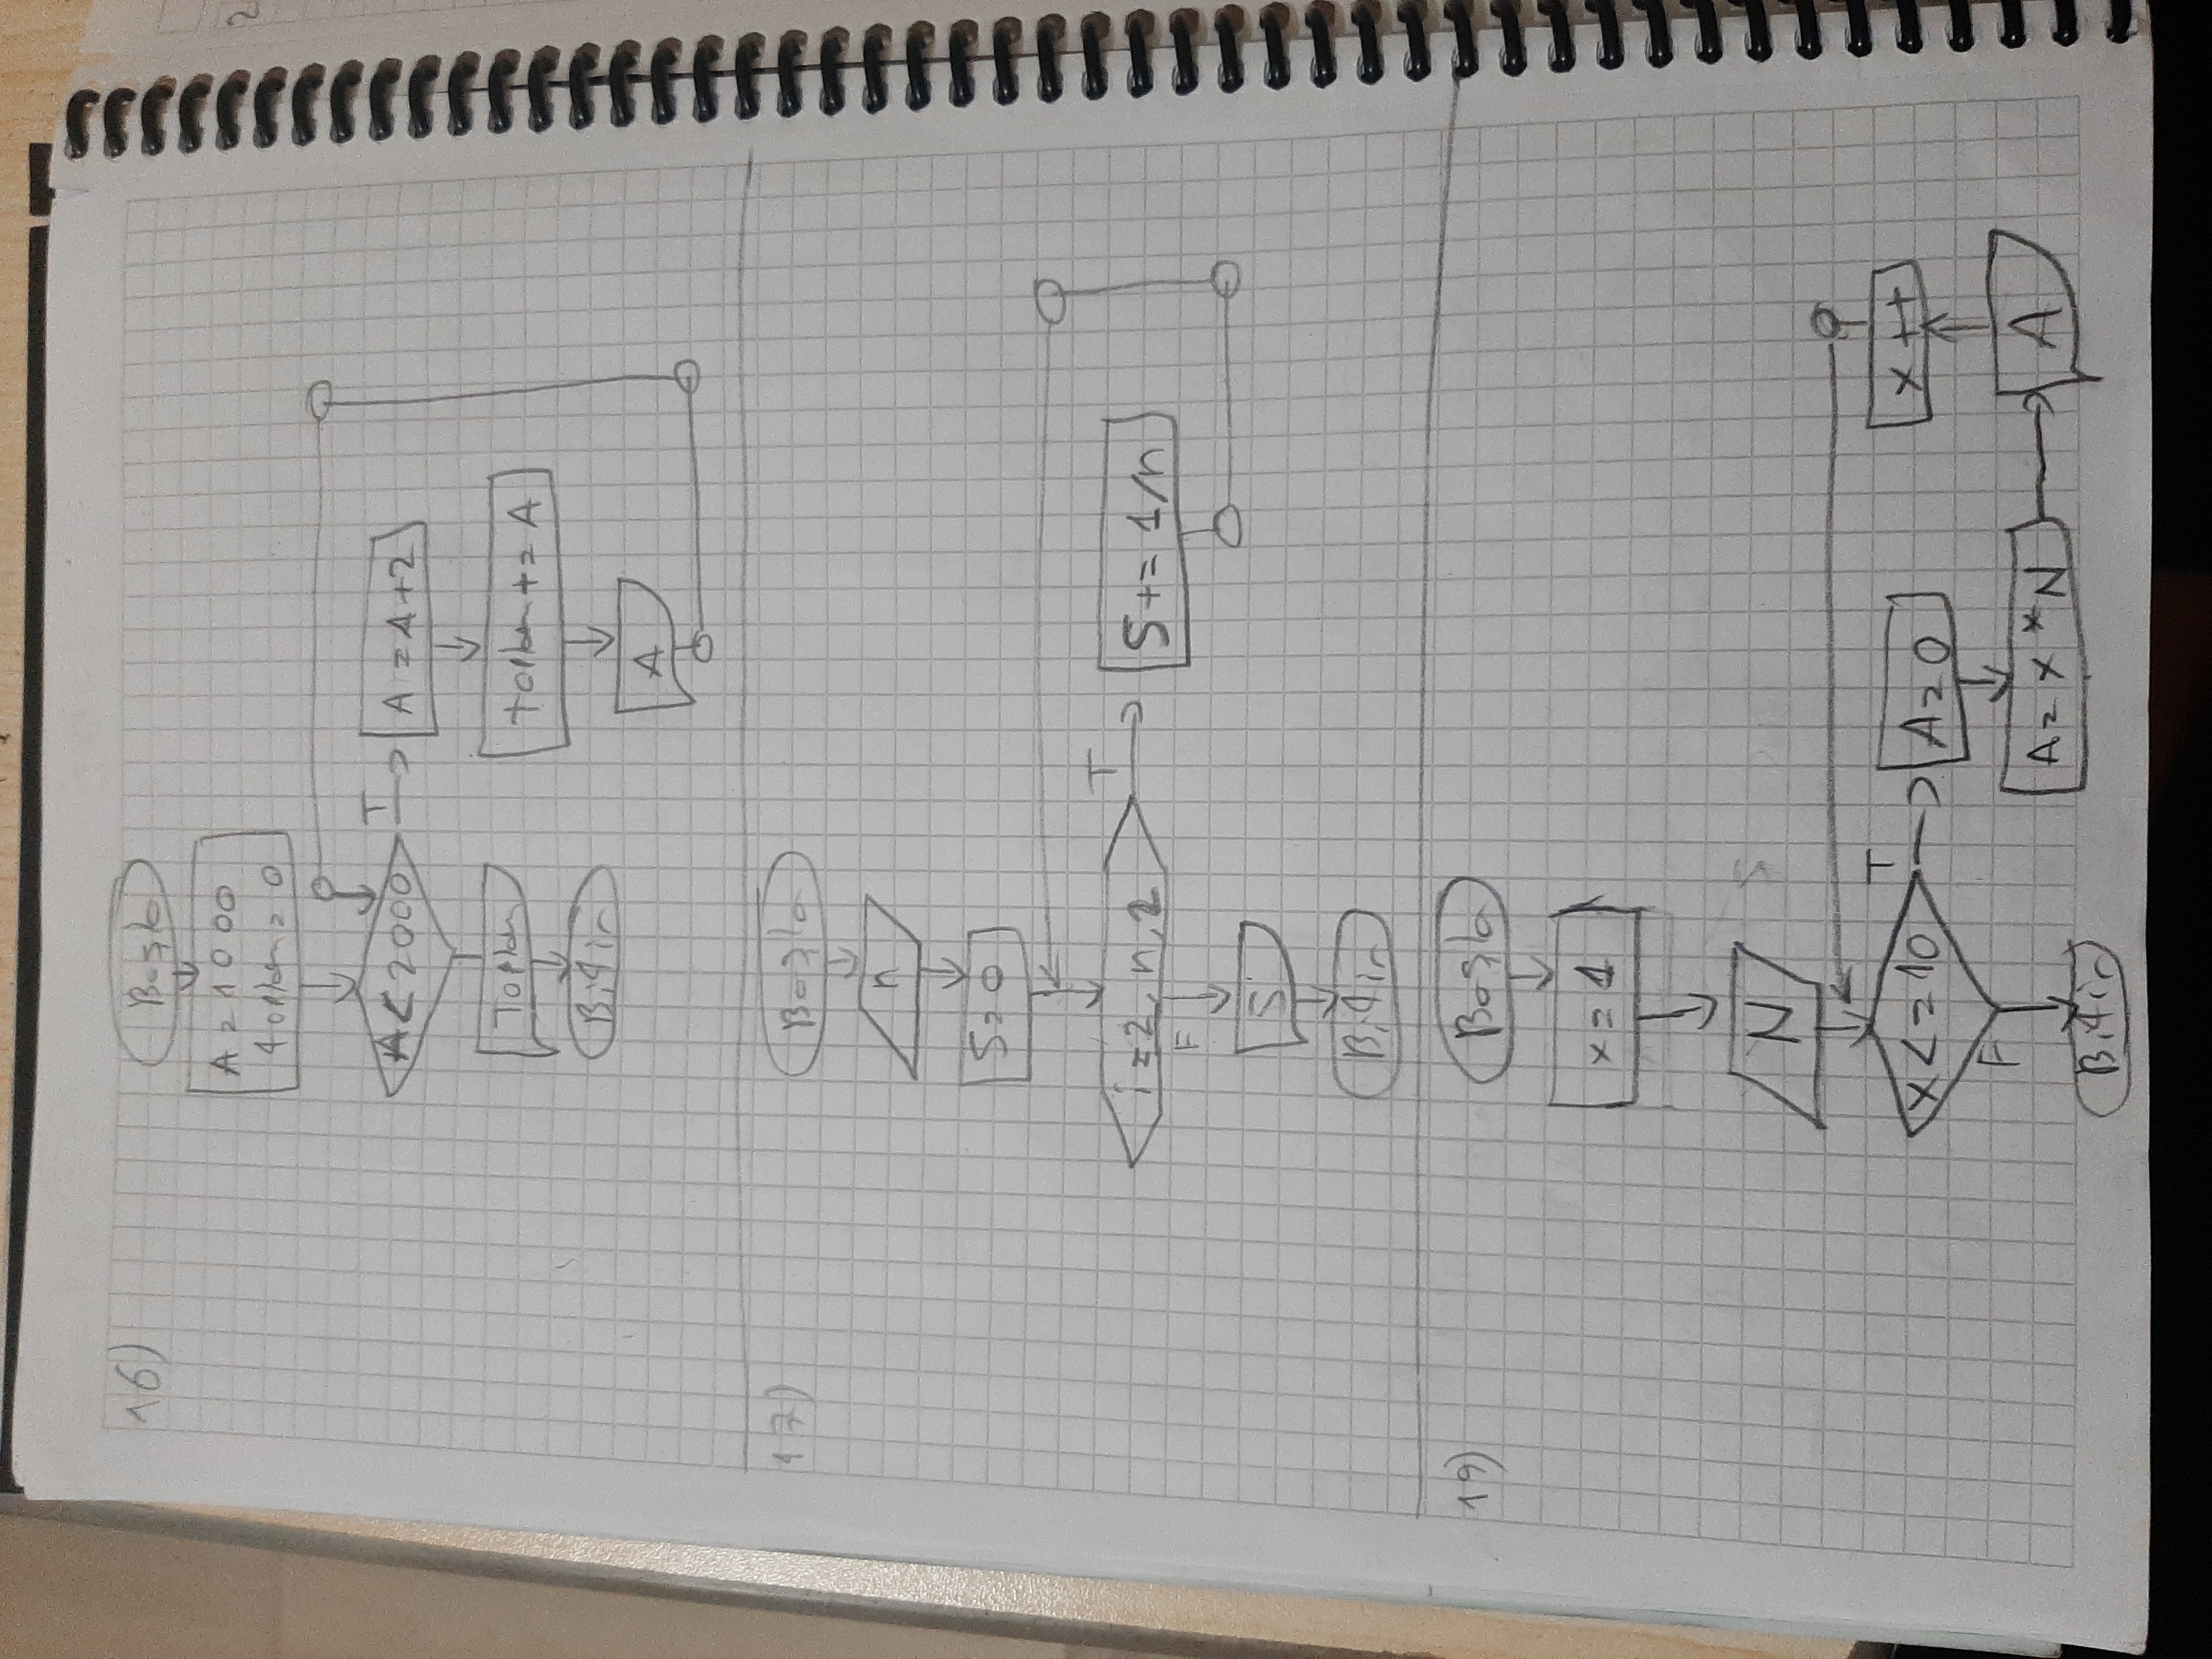 16)
Başla
A = 1000
toplam = 0
A < 2000
T
A = A+2
Toplam
toplam += A
Bitir
A
17)
Başla
n
S = 0
i = 2, n, 2
T
S += 1/n
F
S
Bitir
19)
Başla
x = 1
N
x <= 10
T
A = 0
x ++
F
A = x * N
A
Bitir
2